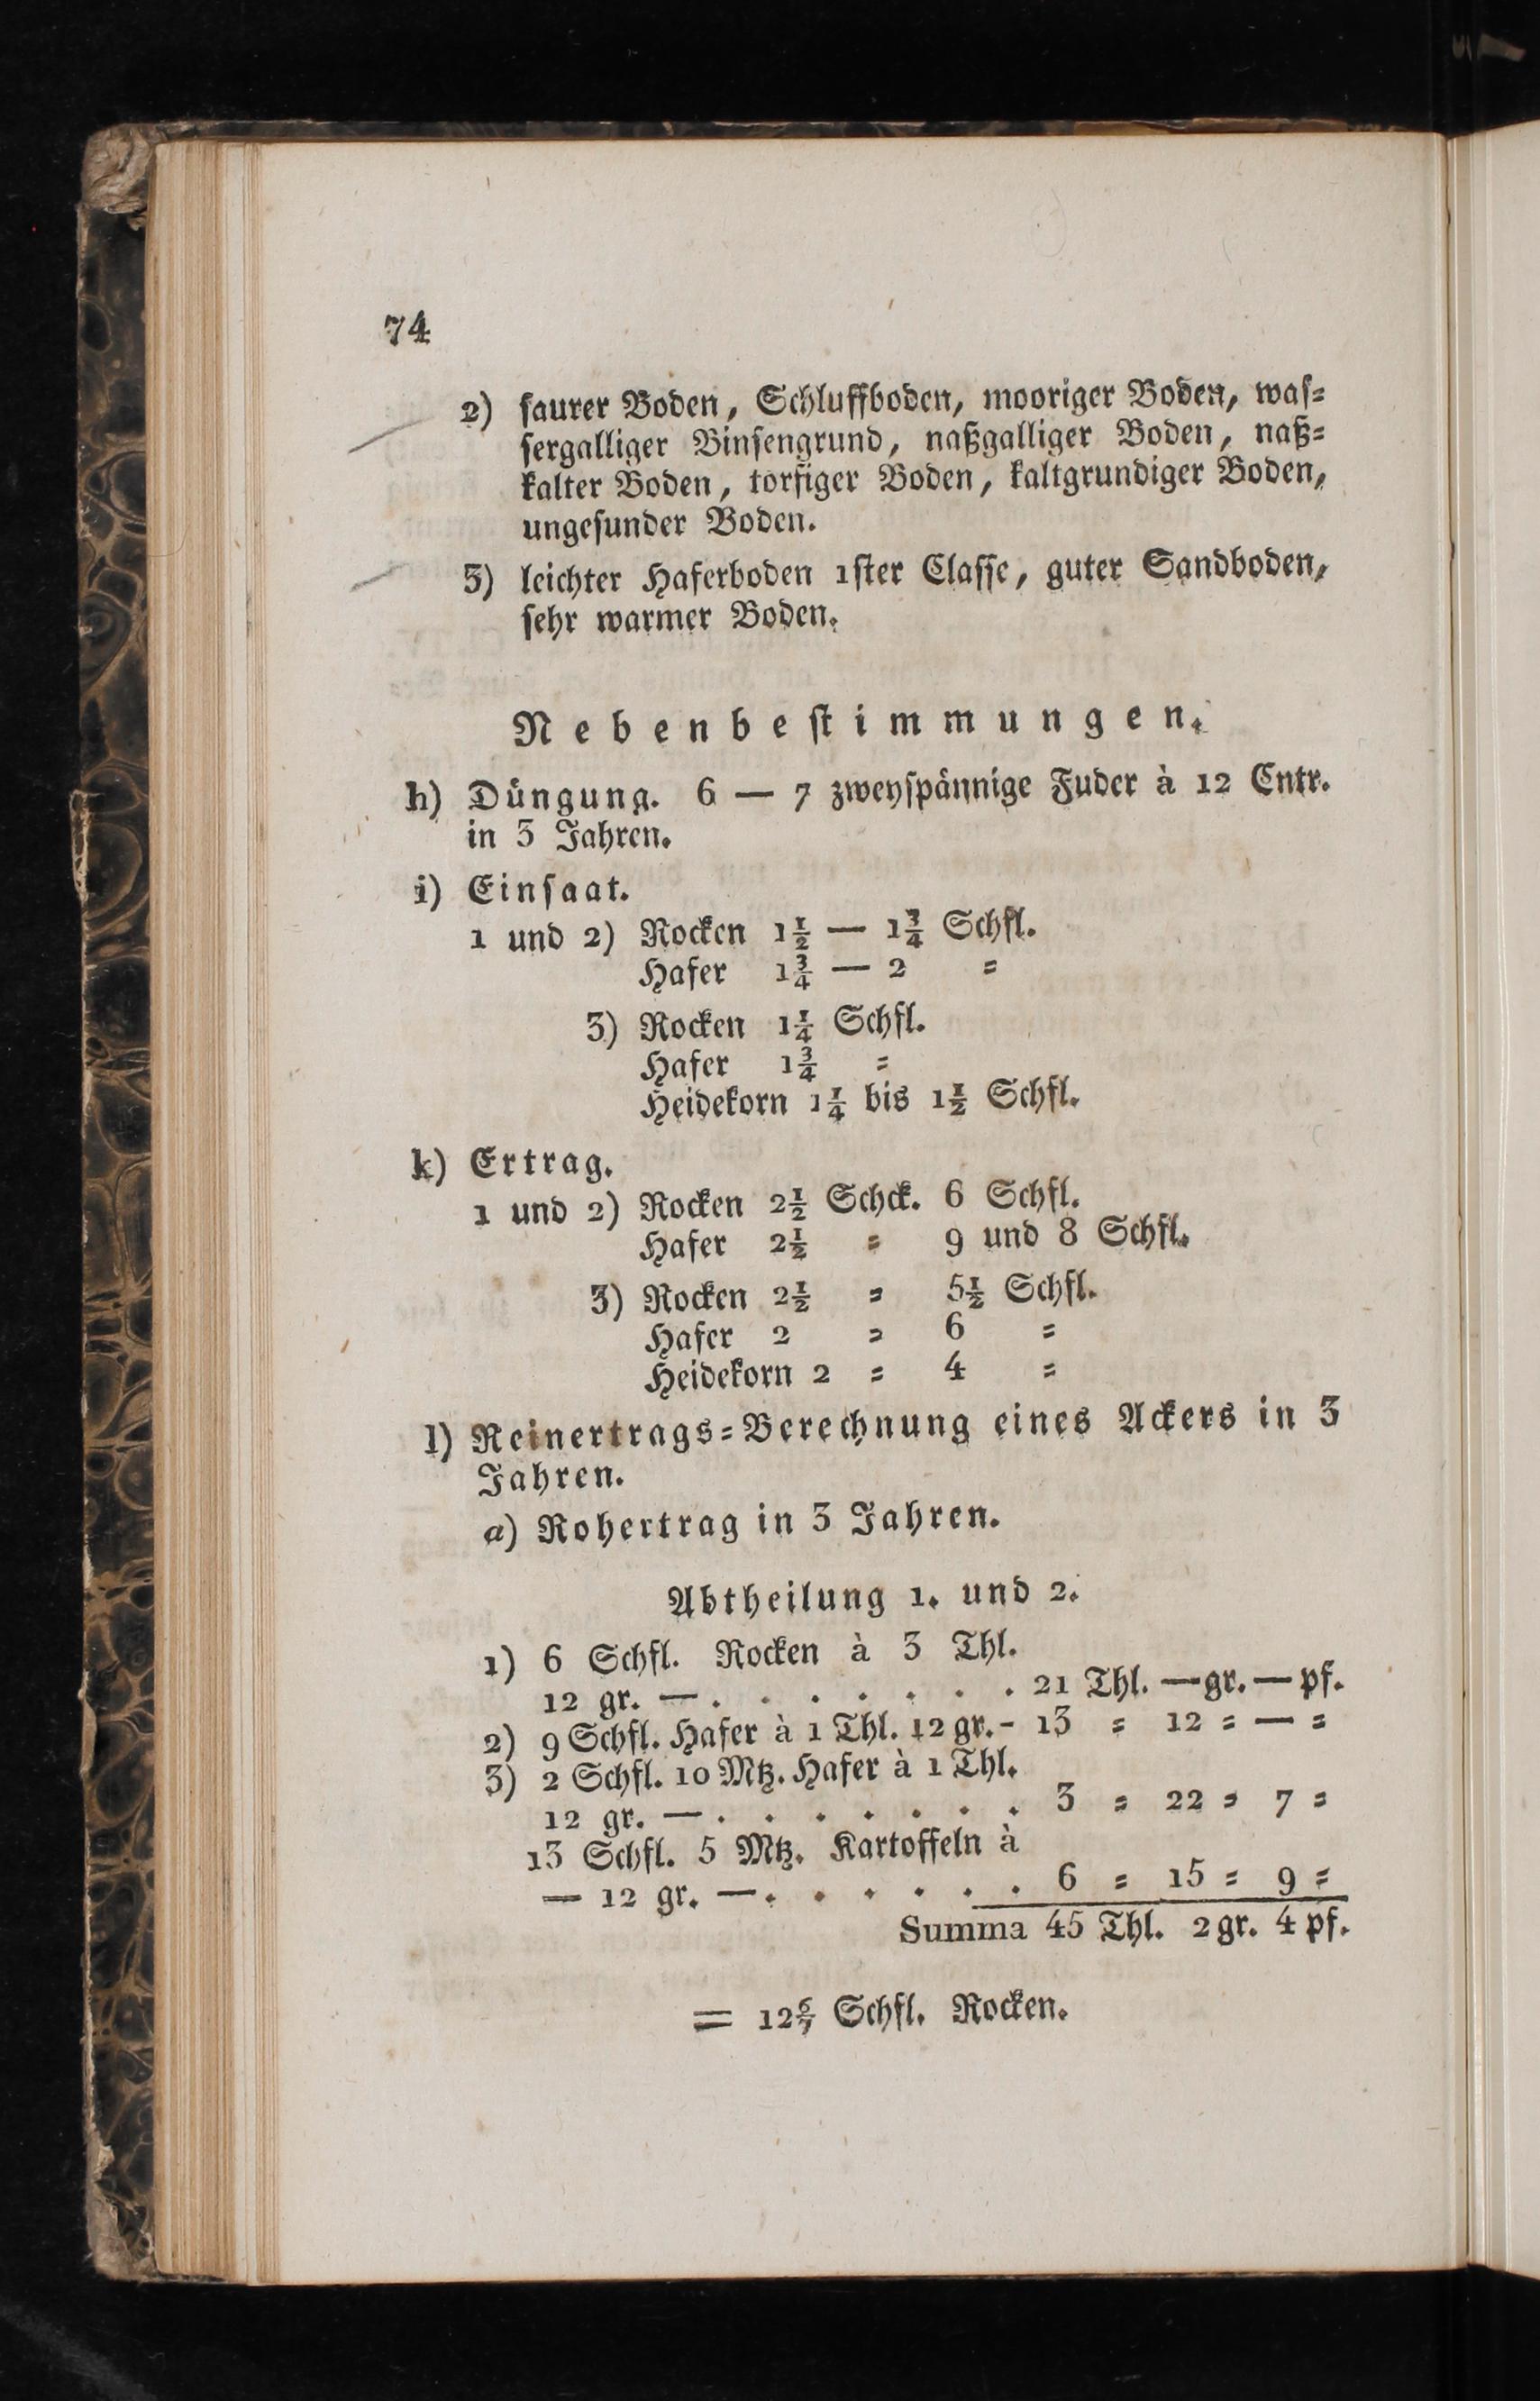 74
2) saurer Boden, Schluffboden, mooriger Boden, was=
sergalliger Binsengrund, naßgalliger Boden, naß=
kalter Boden, torfiger Boden, kaltgrundiger Boden,
ungesunder Boden.
3) leichter Haferboden 1ster Classe, guter Sandboden,
sehr warmer Boden.
Nebenbestimmungen.
h) Düngung. 6 — 7 zweyspännige Fuder à 12 Cntr.
in 3 Jahren.
i) Einsaat.
1 und 2) Rocken 1½ — 1¾ Schfl.
Hafer 1¾ — 2 =
3) Rocken 1¼ Schfl.
Hafer 1¾ =
Heidekorn 1¼ bis 1½ Schfl.
k) Ertrag.
1 und 2) Rocken 2½ Schck. 6 Schfl.
Hafer 2½ = 9 und 8 Schfl.
3) Rocken 2½ = 5½ Schfl.
Hafer 2 = 6 =
Heidekorn 2 = 4 =
l) Reinertrags=Berechnung eines Ackers in 3
Jahren.
a) Rohertrag in 3 Jahren.
Abtheilung 1. und 2.
1) 6 Schfl. Rocken à 3 Thl.
12 gr. — . . . . . . . 21 Thl. — gr. — pf.
2) 9 Schfl. Hafer à 1 Thl. 12 gr. - 13 = 12 = — =
3) 2 Schfl. 10 Mtz. Hafer à 1 Thl.
12 gr. — . . . . . . . 3 = 22 = 7 =
13 Schfl. 5 Mtz. Kartoffeln à
— 12 gr. — . . . . . . 6 = 15 = 9 =
Summa 45 Thl. 2 gr. 4 pf.
= 12 6/7 Schfl. Rocken.